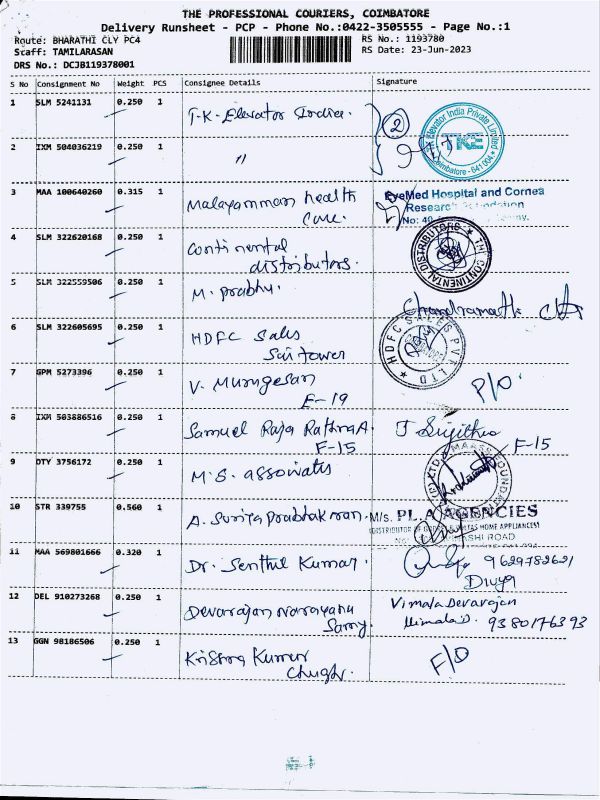 THE PROFESSIONAL COURIERS, COIMBATORE
Delivery Runsheet - PCP - Phone No.:0422-3505555 - Page No.:1
Route: BHARATHI CLY PC4
RS No.: 1193780
Scaff: TAMILARASAN
RS Date: 23-Jun-2023
DRS No.: DCJB119378001
S No Consignment No Weight PCS Consignee Details Signature
1 SLM 5241131 0.250 1 T.K. Elevator India. 2
Elevator India Private Limited
TKE
Coimbatore - 641 004
2 IXM 504036219 0.250 1 "
3 MAA 100640260 0.315 1 Malayamman health
care.
EyeMed Hospital and Cornea
Research Foundation
4 SLM 322620168 0.250 1 Continental
distributors.
THE CONTINENTAL DISTRIBUTORS
5 SLM 322559506 0.250 1 M. Prabhu.
6 SLM 322605695 0.250 1 HDFC Sales
Sai tower
HDFC SALES PVT LTD
7 GPM 5273396 0.250 1 V. Murugesan
F-19
P/O
8 IXM 503886516 0.250 1 Samuel Raja Rathna A.
F-15
J Sujitha
F-15
9 DTY 3756172 0.250 1 M.S. associates
10 STR 339755 0.560 1 A. Suriya Prabhakaran.
M/s. P.L.A AGENCIES
11 MAA 569801666 0.320 1 Dr. Senthil Kumar.
9629782621
Divya
12 DEL 910273268 0.250 1 Devarajan Narayana
Samy.
Vimala Devarajan
Vimala D. 9380176393
13 GGN 98186506 0.250 1 Krishna Kumar
Chugh.
F/O